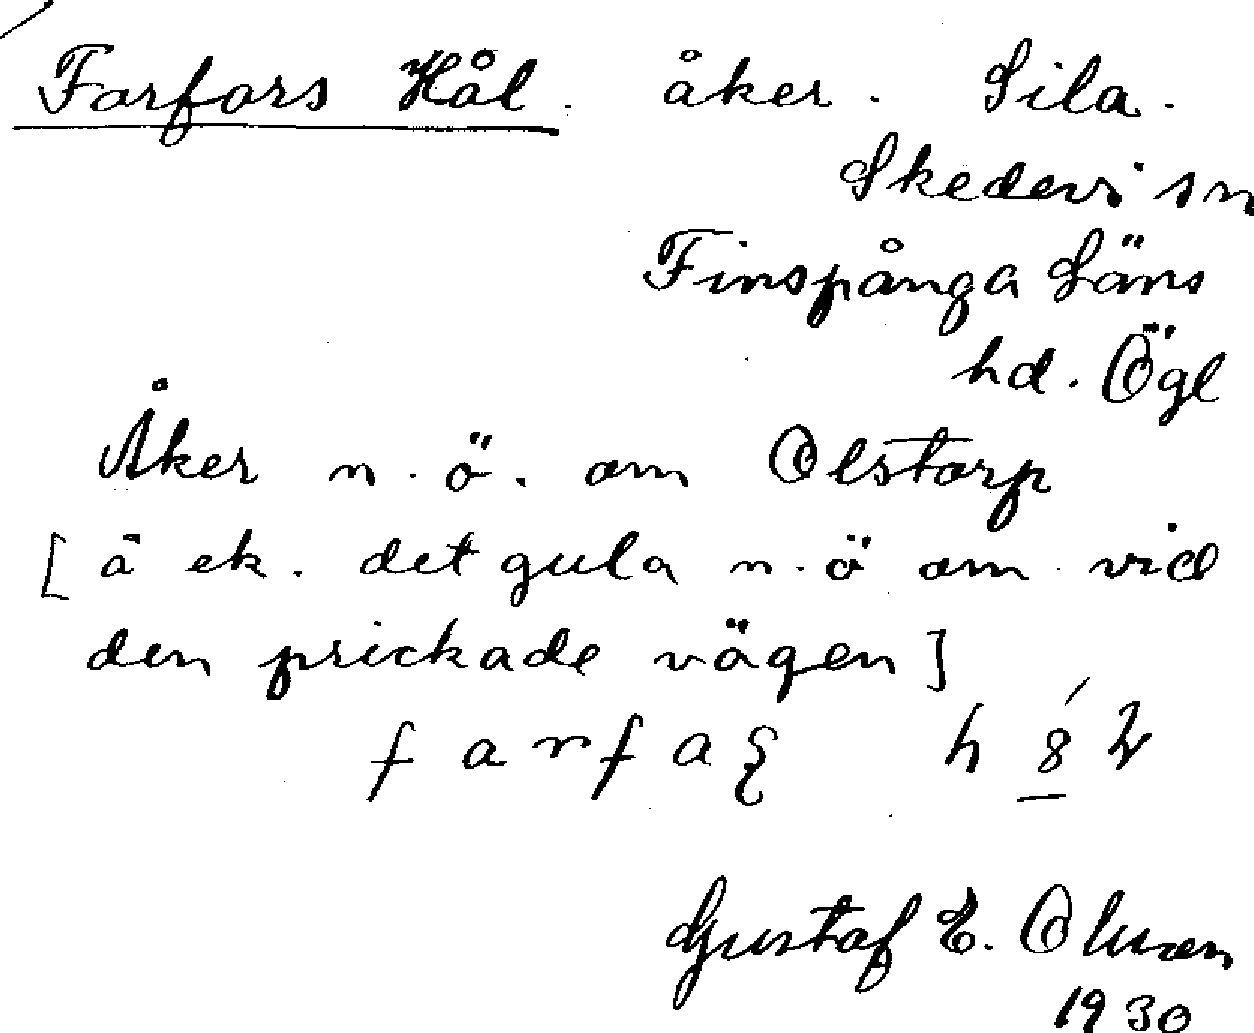 Farfars Hål. åker. Sila.
Skedevi sn
Finspånga Läns
hd. Ögl
Åker n.ö. om Olstorp
[å ek. det gula n.ö om vid
den prickade vägen]
farfa
Gustaf E. Olsson
1930